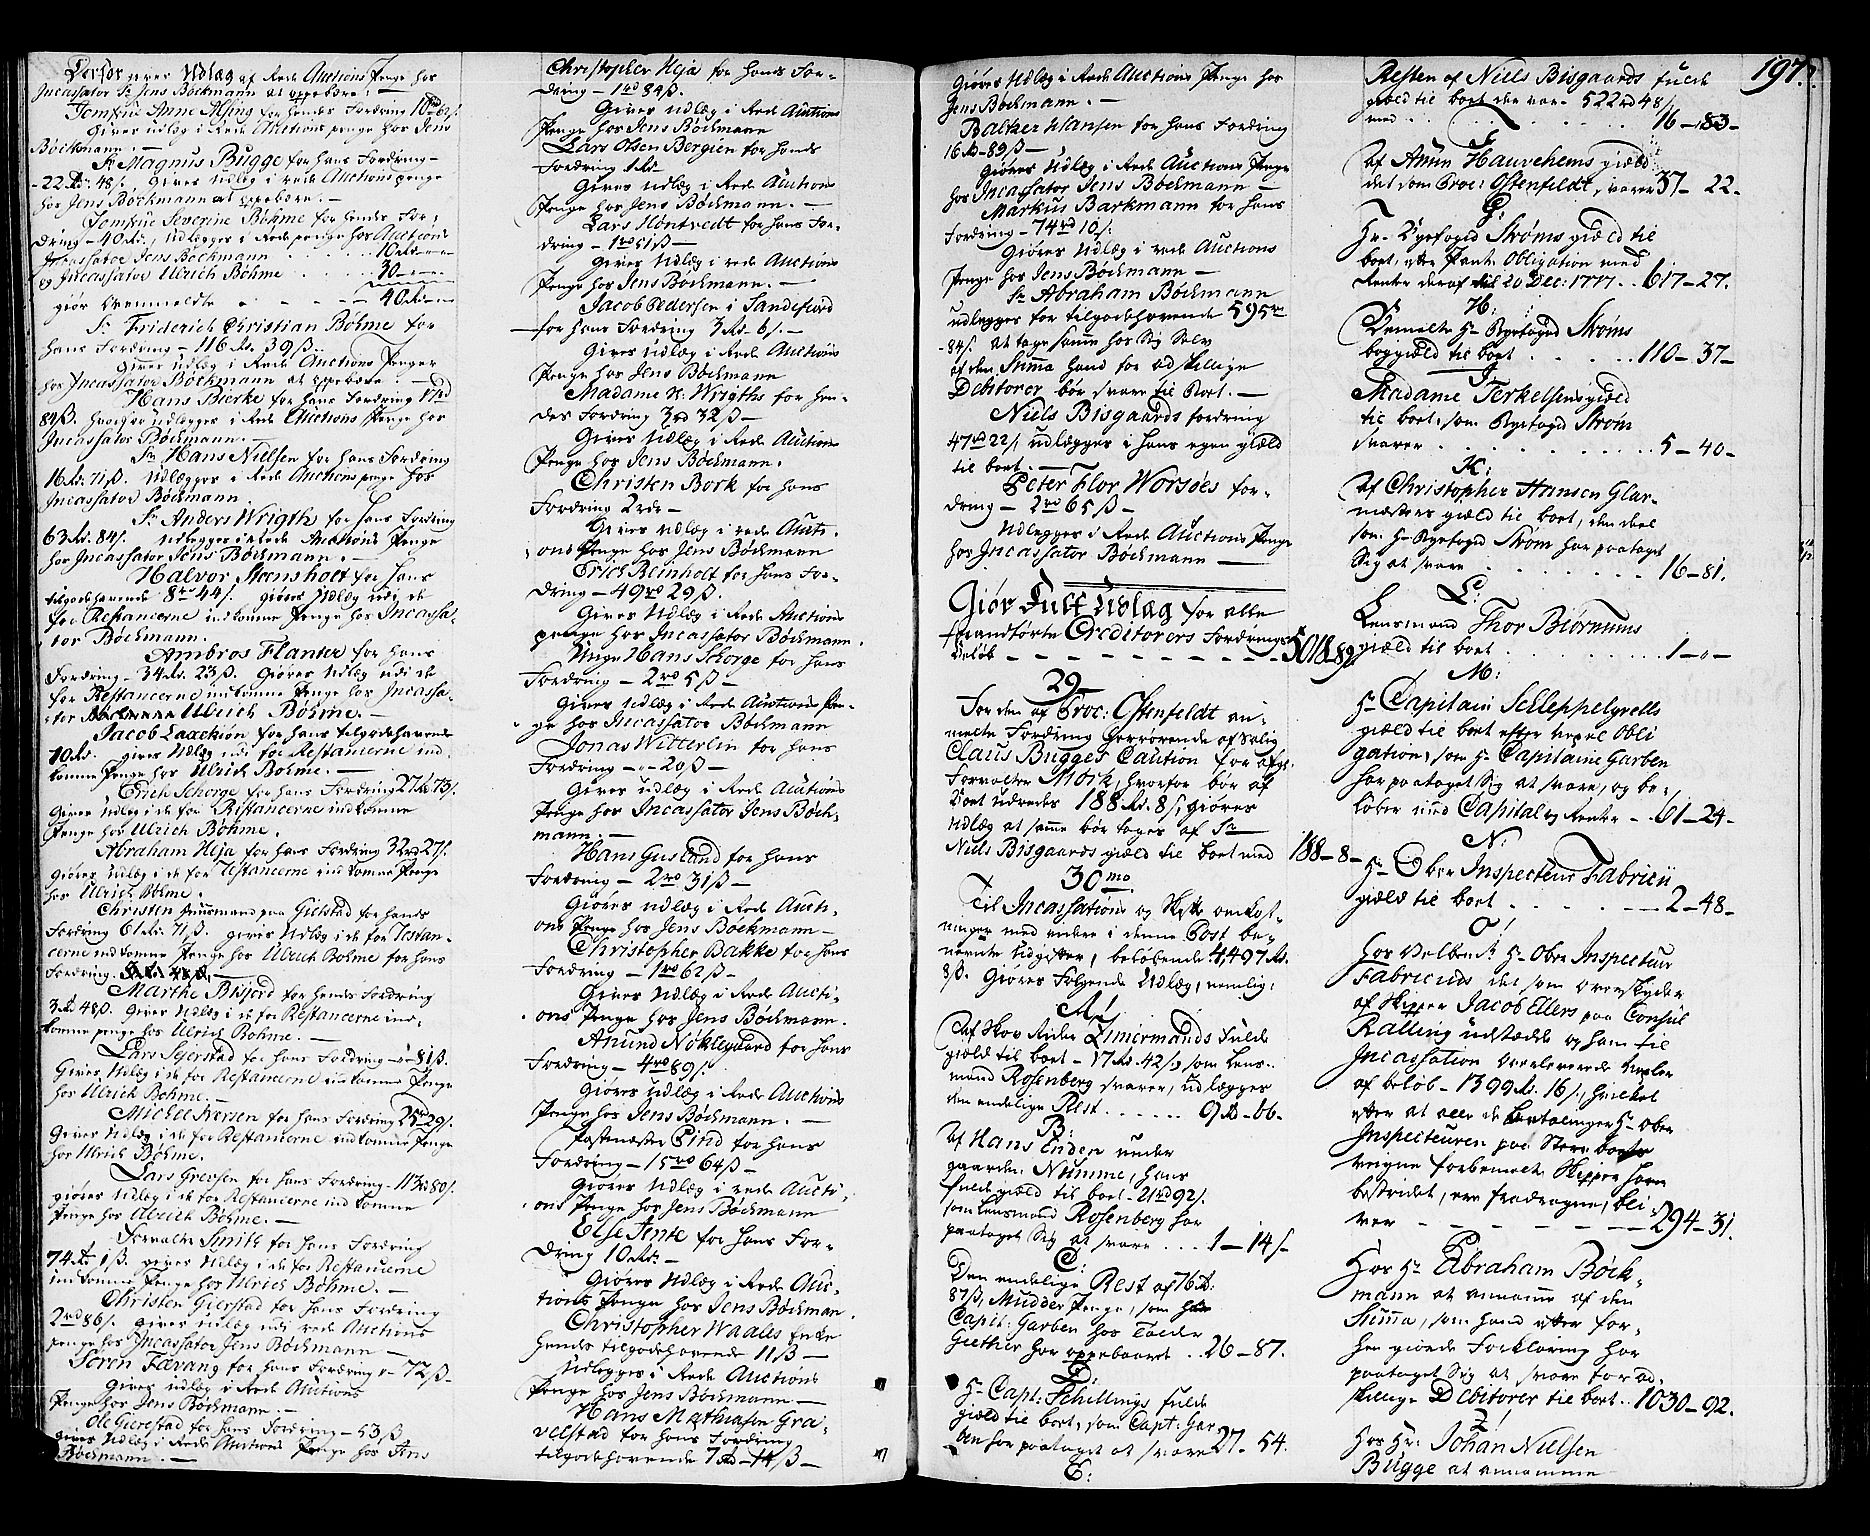 Derfor giøres Udlæg af Rede Auctions Penge hos
Incassator Sr Jens Bøckmann at oppebære. —
Jomfrue Anne Alsing for hendes Fordring 10rd 62/.
Gives udlæg i Rede Auctions penge hos Jens
Bøckmann. —
Sr Magnus Bugge for hans Fordring —
- 22 Rd: 48/. gives udlæg i rede Auctions penge
hos Jens Bøckmann at oppebære. —
Jomfrue Severine Bøhme for hendes For-
dring — 40 Rd., udlægges i Rede penge hos Auctions
Incassator Jens Bøckmann . . . . . 10 Rd — —
og Incassator Ulrich Bøhme . . . . . 30 — —
giør ovenmeldte . . . — 40 Rd — —
Sr Friderich Christian Bøhme for
hans Fordring — 116 Rd. 39 ß. —
Gives udlæg i Rede Auctions Penger
hos Incassator Bøckmann at oppebære. —
Hans Bierke for hans Fordring 17rd
84 ß. hvorfor udlægges i Rede Auctions Penge hos
Incassator Bøckmann.
Sr Hans Nielsen for hans Fordring
16 Rd. 71 ß. udlægges i Rede Auctions penge hos
Incassator Bøckmann
Sr Anders Wrigth for hans Fordring
63 Rd. 84/. udlegges i Rede Auctions Penge
hos Incassator Jens Bøckmann. —
Halvor Steensholt for hans
tilgodehavende 8rd 44/. giøres Udlæg udi de
for Restancerne indkomne Penge hos Incassa-
tor Bøckmann.
Ambros Flanter for hans
Fordring — 34 Rd. 23 ß. Giøres Udlæg udi de
for Restancerne indkomne Penge hos Incassa-
tor Ulrich Bøhme. —
Jacob Laxekion for hans tilgodehavende
10 Rd. gives Udlæg udi for Restancerne ind-
komne Penge hos Ulrich Bøhme. —
Erich Schorge for hans Fordring 27 Rd 73/.
Gives udlæg i de for Restancerne indkomne
Penge hos Ulrich Bøhme.
Abraham Neja for hans Fordring 32rd 27/.
giøres Udlæg i de for Restancerne indkomne Penge
hos Ulrich Bøhme.
Christen paa Gielstad for hands
Fordring 61 Rd. 71 ß. gives Udlæg i de for Restan-
cerne indkomne Penge hos Ulrich Bøhme for hans
Fordring.
Marthe Bisjord for hendes Fordring
3 Rd 48 ß. Gives Udlæg i de for Restancerne ind-
komne penge hos Ulrich Bøhme. —
Lars Syerstad for hans Fordring — 81 ß.
Gives Udlæg i de for Restancerne indkomne Penge
hos Ulrich Bøhme. —
Michel Iversen for hans Fordring 25rd 29/.
Gives Udlæg i de for Restancerne indkomne Penge
hos Ulrich Bøhme.
Lars Grevsen for hans Fordring — 113rd 80/.
giøres Udlæg i de for Restancerne indkomne
Penge hos Ulrich Bøhme. —
Forvalter Smith for hans Fordring
74 Rd 1 ß. gives Udlæg i de for Restancerne
indkomne Penge hos Ulrich Bøhme. —
Christen Gierstad for hans Fordring
2rd 86/. gives udlæg udi rede Auctions
penge hos Incassator Jens Bøckmann —
Søren Færvang for hans Fordring — 72 ß —
Gives udlæg i Rede Auctions
Penge hos Jens Bøckmann. —
Ole Gierestad for hans Fordring — 53 ß
gives Udlæg i Rede Auctions Penge hos Jens
Bøckmann. —
Christopher Neja for hans For-
dring — 1rd 84 ß —
Gives Udlæg i Rede Auctions
Penge hos Jens Bøckmann
Lars Olsen Bergien for hans
Fordring 1 Rd —
Gives Udlæg i Rede Auctions
Penge hos Jens Bøckmann. —
Lars Hontvedt for hans For-
dring — 1rd 51 ß —
Gives Udlæg i rede Auctions
Penge hos Jens Bøckmann. —
Jacob Pedersen i Sandefiord
for hans Fordring 3 Rd. 6/. —
Gives Udlæg i Rede Auctions
Penge hos Jens Bøckmann
Madame N: Wrigths for hen-
des Fordring 3rd 32 ß —
Gives Udlæg i Rede Auctions
Penge hos Jens Bøckmann.
Christen Bork for hans
Fordring 2rd —
Gives Udlæg i rede Aucti-
ons Penge hos Jens Bøckmann
Erich Reinholt for hans For-
dring — 49rd 29 ß —
Gives Udlæg i Rede Auctions
penge hos Incassator Bøckmann.
Unge Hans Schorge for hans
Fordring — 2rd 5 ß —
Gives Udlæg i Rede Auctions Pen-
ge hos Incassator Bøckmann
Jonas Witterlin for hans
Fordring — 20 ß —
Gives Udlæg i Rede Auctions
Penge hos Incassator Jens Bøck-
mann. —
Hans Gusland for hans
Fordring — 2rd 31 ß —
Giøres Udlæg i Rede Aucti-
ons Penge hos Jens Bøckmann —
Christopher Bakke for hans
Fordring — 1rd 62 ß —
Gives Udlæg i Rede Aucti-
ons Penge hos Jens Bøckmann.
Anund Nøklegaard for hans
Fordring — 4rd 89/.
Giøres Udlæg i Rede Auctions
Penge hos Jens Bøckmann. —
Postmester Lind for hans
Fordring — 15rd 64 ß —
Giøres Udlæg i rede Aucti-
ons Penge hos Jens Bøckmann
Else Ante for hans For-
dring 10 Rd. —
Giøres Udlæg i Rede Auc-
tions Penge hos Jens Bøckman.
Christopher Waales Enke
hendes tilgodehavende 11 ß —
Udlegges i Rede Auctions
Penge hos Jens Bøckmann —
Hans Mathiasen Gra-
velstad for hans Fordring
tilgodehavende 7 Rd — 14 ß —
197.
Giøres Udlæg i Rede Auctions Penge hos
Jens Bøckmann. —
Balker Hansen for hans Fordring
16 Rd — 89 ß —
Giøres Udlæg i Rede Auctions Penge
hos Incassator Jens Bøckmann —
Markus Barkmann for hans
Fordring — 74rd 10/.
Giøres Udlæg i rede Auctions
Penge hos Jens Bøckmann —
Sr Abraham Bøckmann
udlegges for tilgodehavende 595rd
84/. at tage samme hos Sig Selv
af den Summa hand for adskillige
Debitorer bør svare til Boet. —
Niels Bisgaards fordring
47rd 22/. udlægges i hans egen giæld
til boet. —
Peter Flor Worsøes for-
dring — 2rd 65 ß —
Udlegges i Rede Auctions Penge
hos Incassator Bøckmann —
Giør Fult Udlæg for alle
fremførte Creditorers Fordrings
Beløb — — — — — 5018 — 89
29
For den af Proc: Ostenfeldt an-
meldte Fordring herrørende af Salig
Claus Bugges Caution for afg:
Forvalter Mørk, hvorfor bør af
Boet udredes 188 Rd. 8/. giøres
Udlæg at samme bør tages af Sr
Niels Bisgaards giæld til boet med 188 — 8 —
30mo.
Til Incassations og Skifte omkost-
ninger med videre i denne Post be-
nævnte Udgifter, beløbende 4,497 Rd.
8 ß. Giøres Følgende Udlæg, nemlig:
A:
Af Skov Rider Zimermands Fulde
giæld til boet — 17 Rd. 42/. som Lens-
mand Rosenberg svarer, udlægges
den endelige Rest . . . . 9 Rd — 66.
B:
Af Hans Enden under
gaarden Numme, hans
fulde giæld til boet — 21rd 92/.
som Lensmand Rosenberg har
paataget Sig at svare . . . 1 — 14/.
C:
Den endelige Rest af 76 Rd:
87 ß, Mudder Penge, som
Capit: Garben hos Tolder
Giether har oppebaaret . . 26 — 87.
D:
Hr Capt: Schillings fulde
giæld til boet, som Capt: Gar-
ben har paataget at svare 27. 54.
E:
Resten af Niels Bisgaards fulde
giæld til boet der var — 522rd 48/.
med . . . . . . . 16 — 83 —
F
Af Amün Hauvehems giæld
det som Proc: Ostenfeldt svarer 37 — 22 —
G:
Hr. Byefoged Strøms giæld til
boet, efter Pante Obligation med
Renter deraf til 20 Dec: 1777 . . 617 — 27.
H:
Bemelte Hr Byefoged Strøms
boggiæld til boet . . . . 110 — 37 —
I:
Madame Terkelsens giæld
til boet, som Byefoged Strøm
svarer . . . . . . . 5 — 40 —
K:
Af Christopher Hansen Glar-
mesters giæld til boet, den deel
som Hr Byefoged Strøm har paataget
Sig at svare . . . . . 16 — 81.
L:
Lensmand Thor Biørnums
giæld til boet . . . . . 1 — " —
M:
Hr Capitain Schleppelgrells
giæld til boet efter Vexel Obli
gation, som Hr Capitaine Garben
har paataget Sig at svare, og be-
løber med Capital og Renter — 61 — 24 —
N:
Hr Ober Inspecteur Fabricii
giæld til boet . . . . — 2 — 48 —
O
Hos Velbr. Hr Ober Inspecteur
Fabricius det som overskyder
af Skipper Jacob Ellers paa Consul
Ralling udstædte og ham til
Incassation overleverede Vexler
af beløb — 1399 Rd. 16/., hvilket
efter at alle de betalinger Hr Ober
Inspecteuren paa Sterv boets
veigne forbemelte Skipper haver
bestridet, ere fradragne, bli-
ver — — — — — 294 — 31.
Hos Hr Abraham Bøck-
mann at annamme af den
Summa, som hand efter for-
hen giorde Forklaring har
paataget Sig at svare for ad-
skillige Debitorer til boet . . 1030 — 92.
Hos Hr: Johan Nielsen
Bugge at annamme